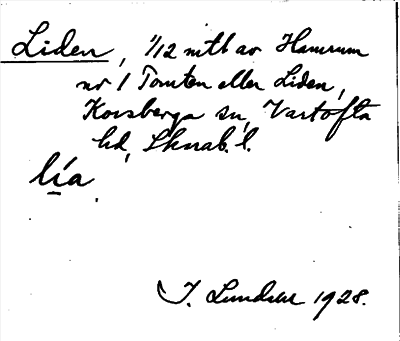 Liden, 1/12 mtl av Hamrum
nr 1 Tomten eller Liden,
Korsberga sn, Vartofta
hd, Skarab. l.
lía
J. Lundar 1928.